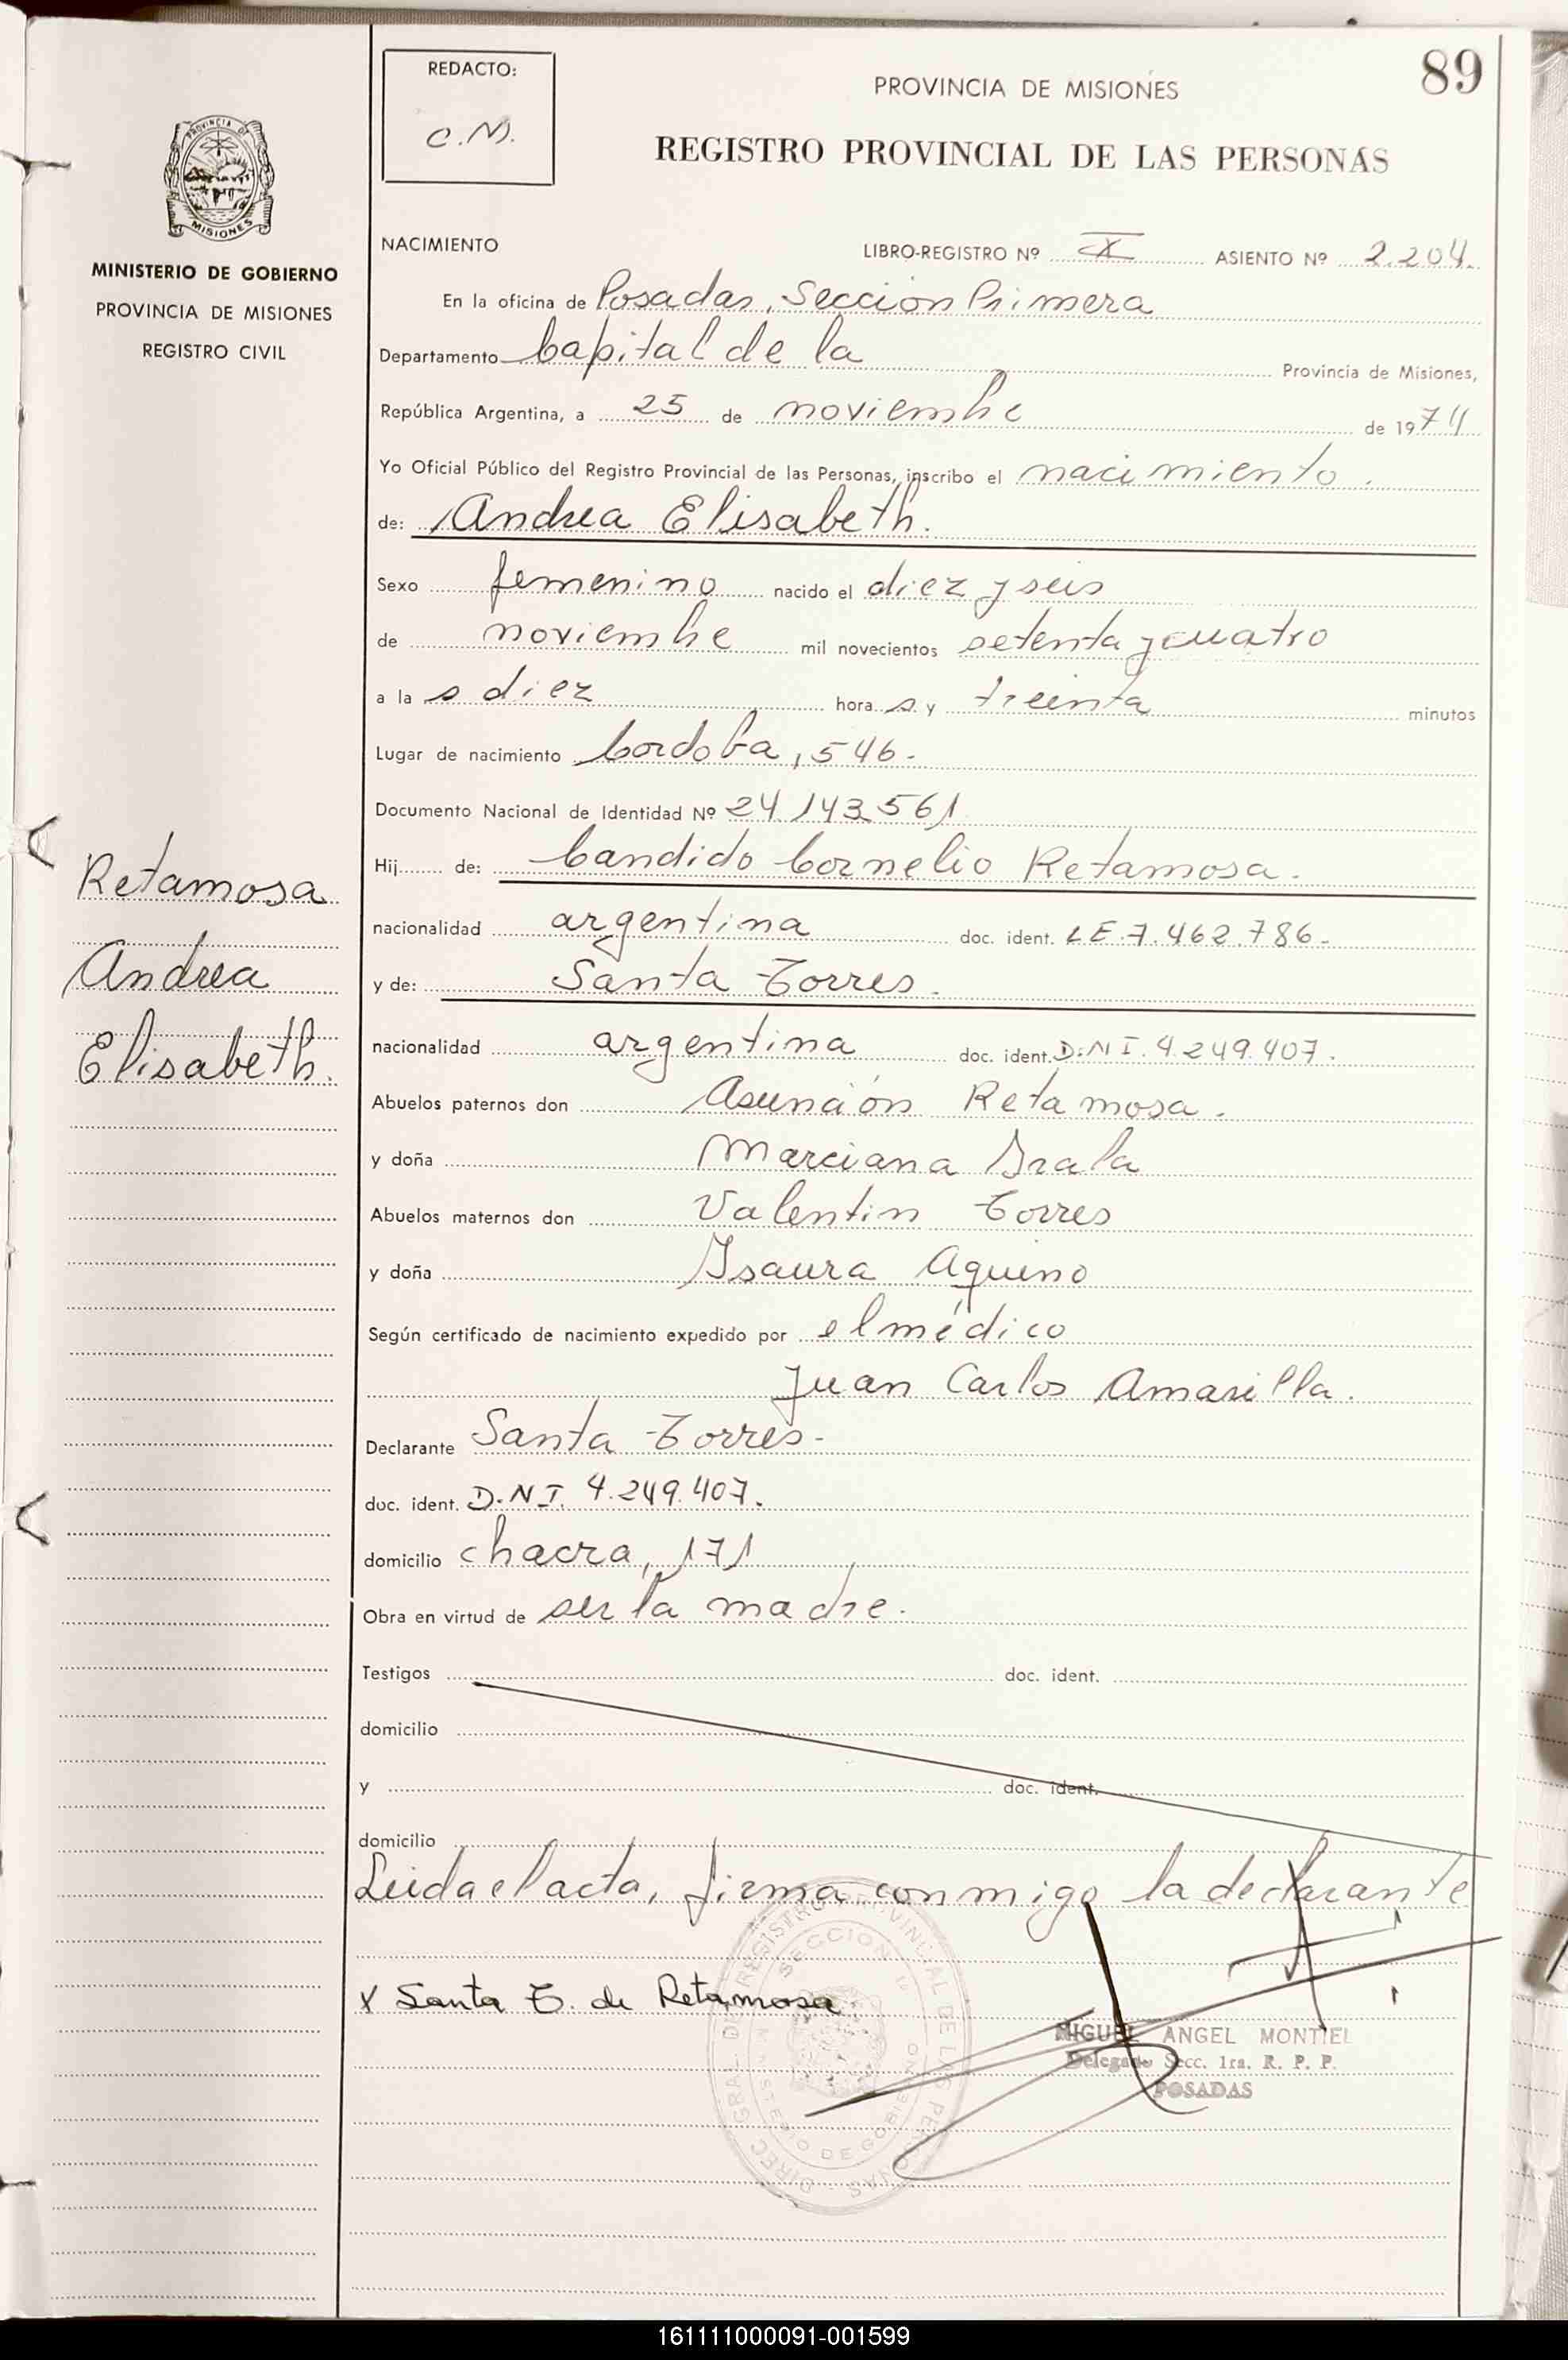 89
REDACTO:
C.M.
PROVINCIA DE MISIONES
REGISTRO PROVINCIAL DE LAS PERSONAS
MISIONES
MINISTERIO DE GOBIERNO
PROVINCIA DE MISIONES
REGISTRO CIVIL
NACIMIENTO LIBRO-REGISTRO Nº IX ASIENTO Nº 2.204.
En la oficina de Posadas, Sección Primera
Departamento Capital de la Provincia de Misiones,
República Argentina, a 25 de noviembre de 1974
Yo Oficial Público del Registro Provincial de las Personas, inscribo el nacimiento.
de: Andrea Elisabeth.
Sexo femenino nacido el diez y seis
de noviembre mil novecientos setenta y cuatro
a la s diez hora s y treinta minutos
Lugar de nacimiento Cordoba, 546.
Documento Nacional de Identidad Nº 24.143.561
Hij de: Candido Cornelio Retamosa.
nacionalidad argentina doc. ident. LE.7.462.786.
y de: Santa Torres.
nacionalidad argentina doc. ident. D.N.I. 4.249.407.
Abuelos paternos don Asunción Retamosa.
y doña Marciana Irala
Abuelos maternos don Valentin Torres
y doña Isaura Aquino
Según certificado de nacimiento expedido por el médico
Juan Carlos Amarilla.
Declarante Santa Torres.
doc. ident. D.N.I. 4.249.407.
domicilio chacra, 171
Obra en virtud de ser la madre.
Testigos doc. ident.
domicilio
y doc. ident.
domicilio
Leida el acta, firma conmigo la declarante
x Santa T. de Retamosa
MIGUEL ANGEL MONTIEL
Delegado Secc. 1ra. R. P. P.
POSADAS
DIREC. GRAL. DE REGISTRO PROVINCIAL DE LAS PERSONAS
SECCION 1ª
MINISTERIO DE GOBIERNO
Retamosa
Andrea
Elisabeth.
161111000091-001599